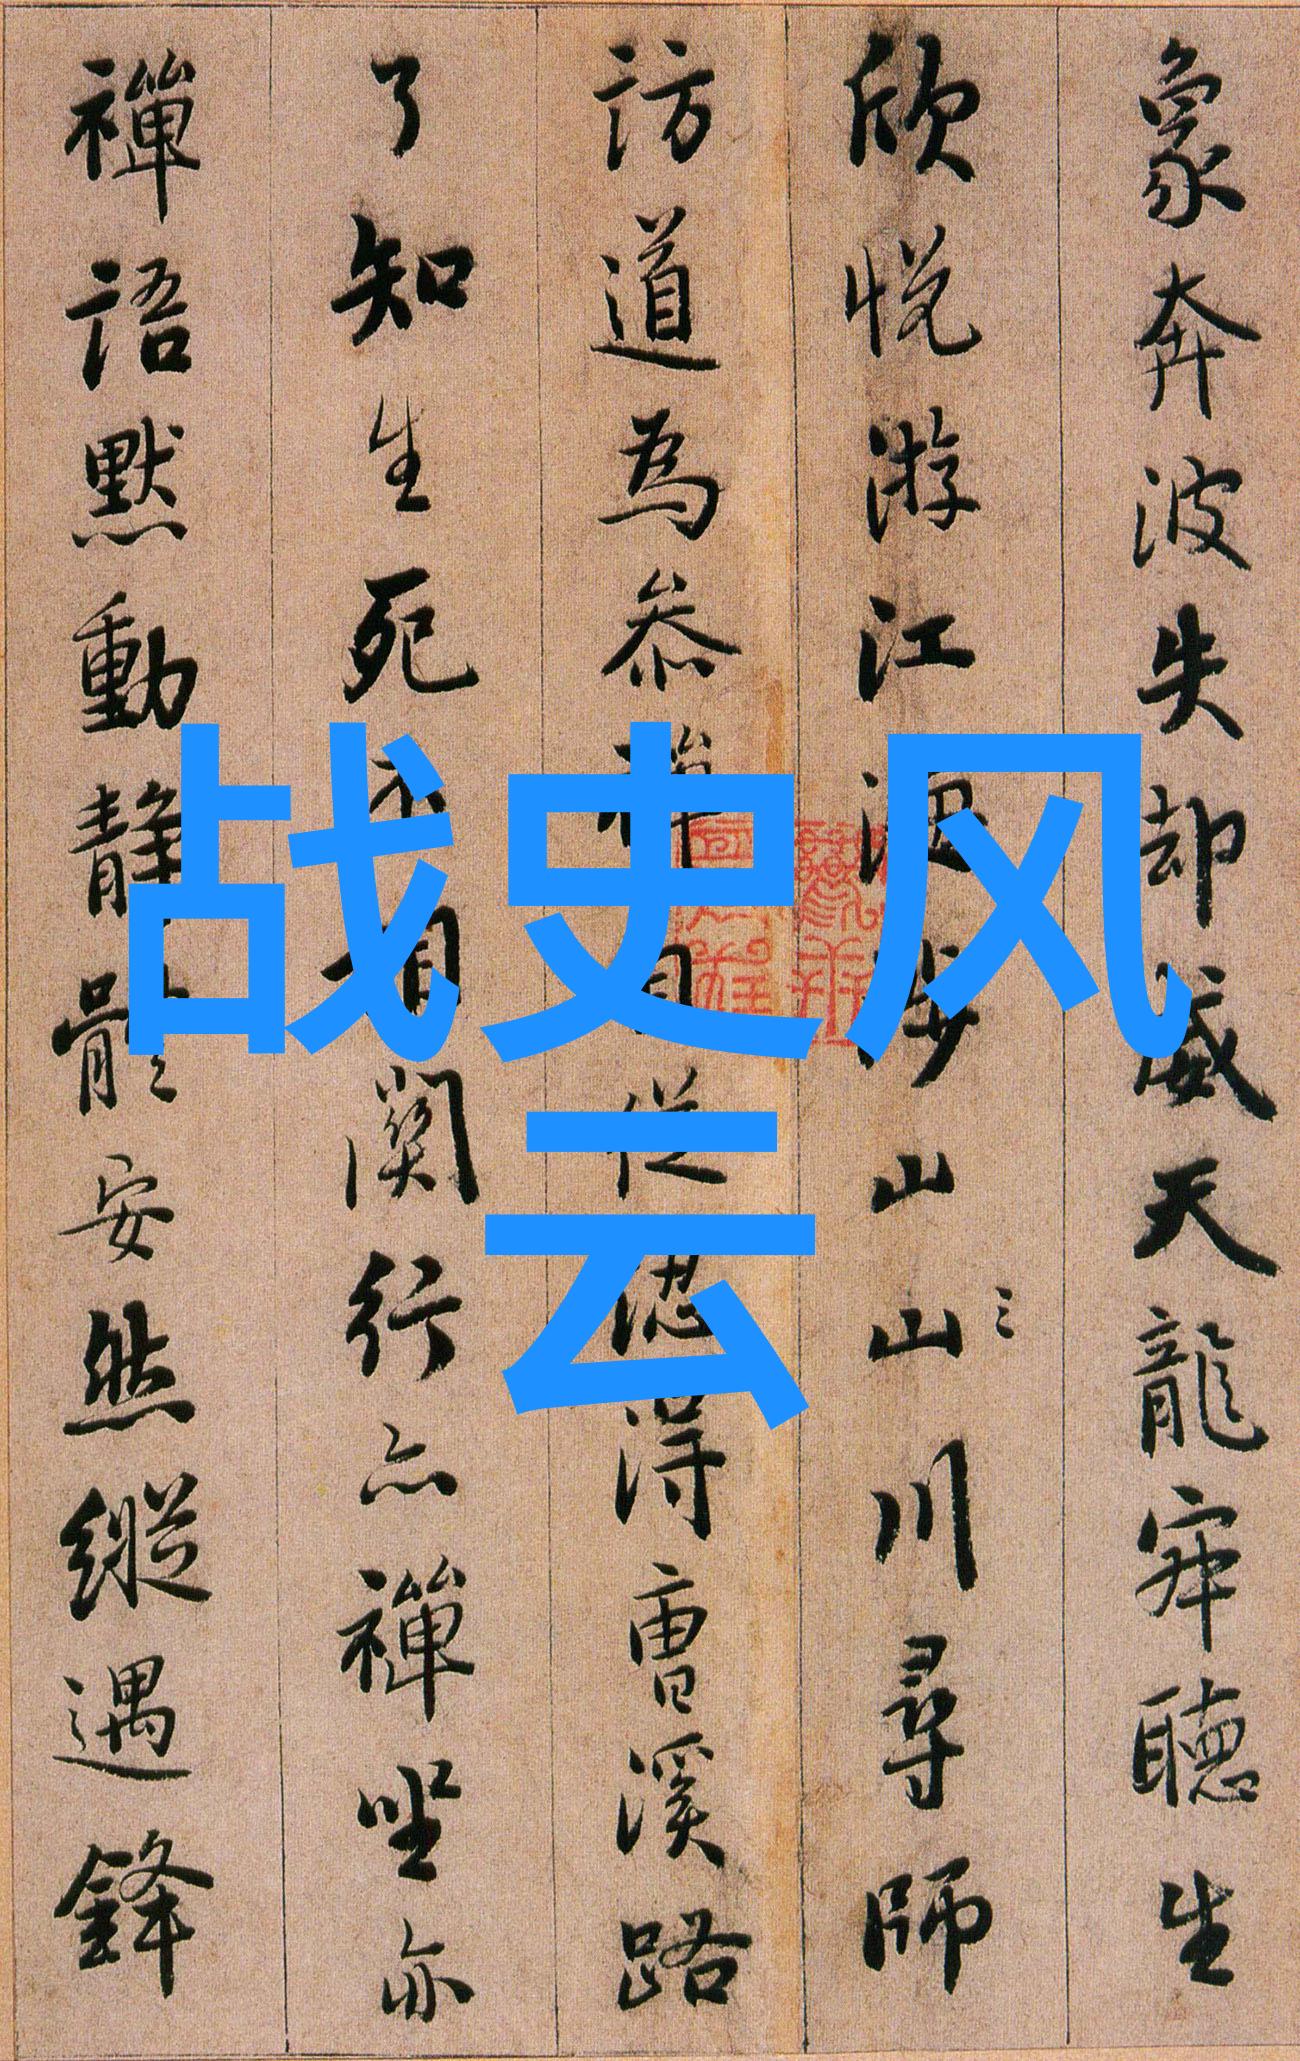 象奔波失却威天龍寂聽生
欣悅游江海涉山山川尋師
訪道為參禪自從認得曹溪路
了知生死不相關行亦禪坐亦
禪語默動靜體安然縱遇鋒
战史风
云